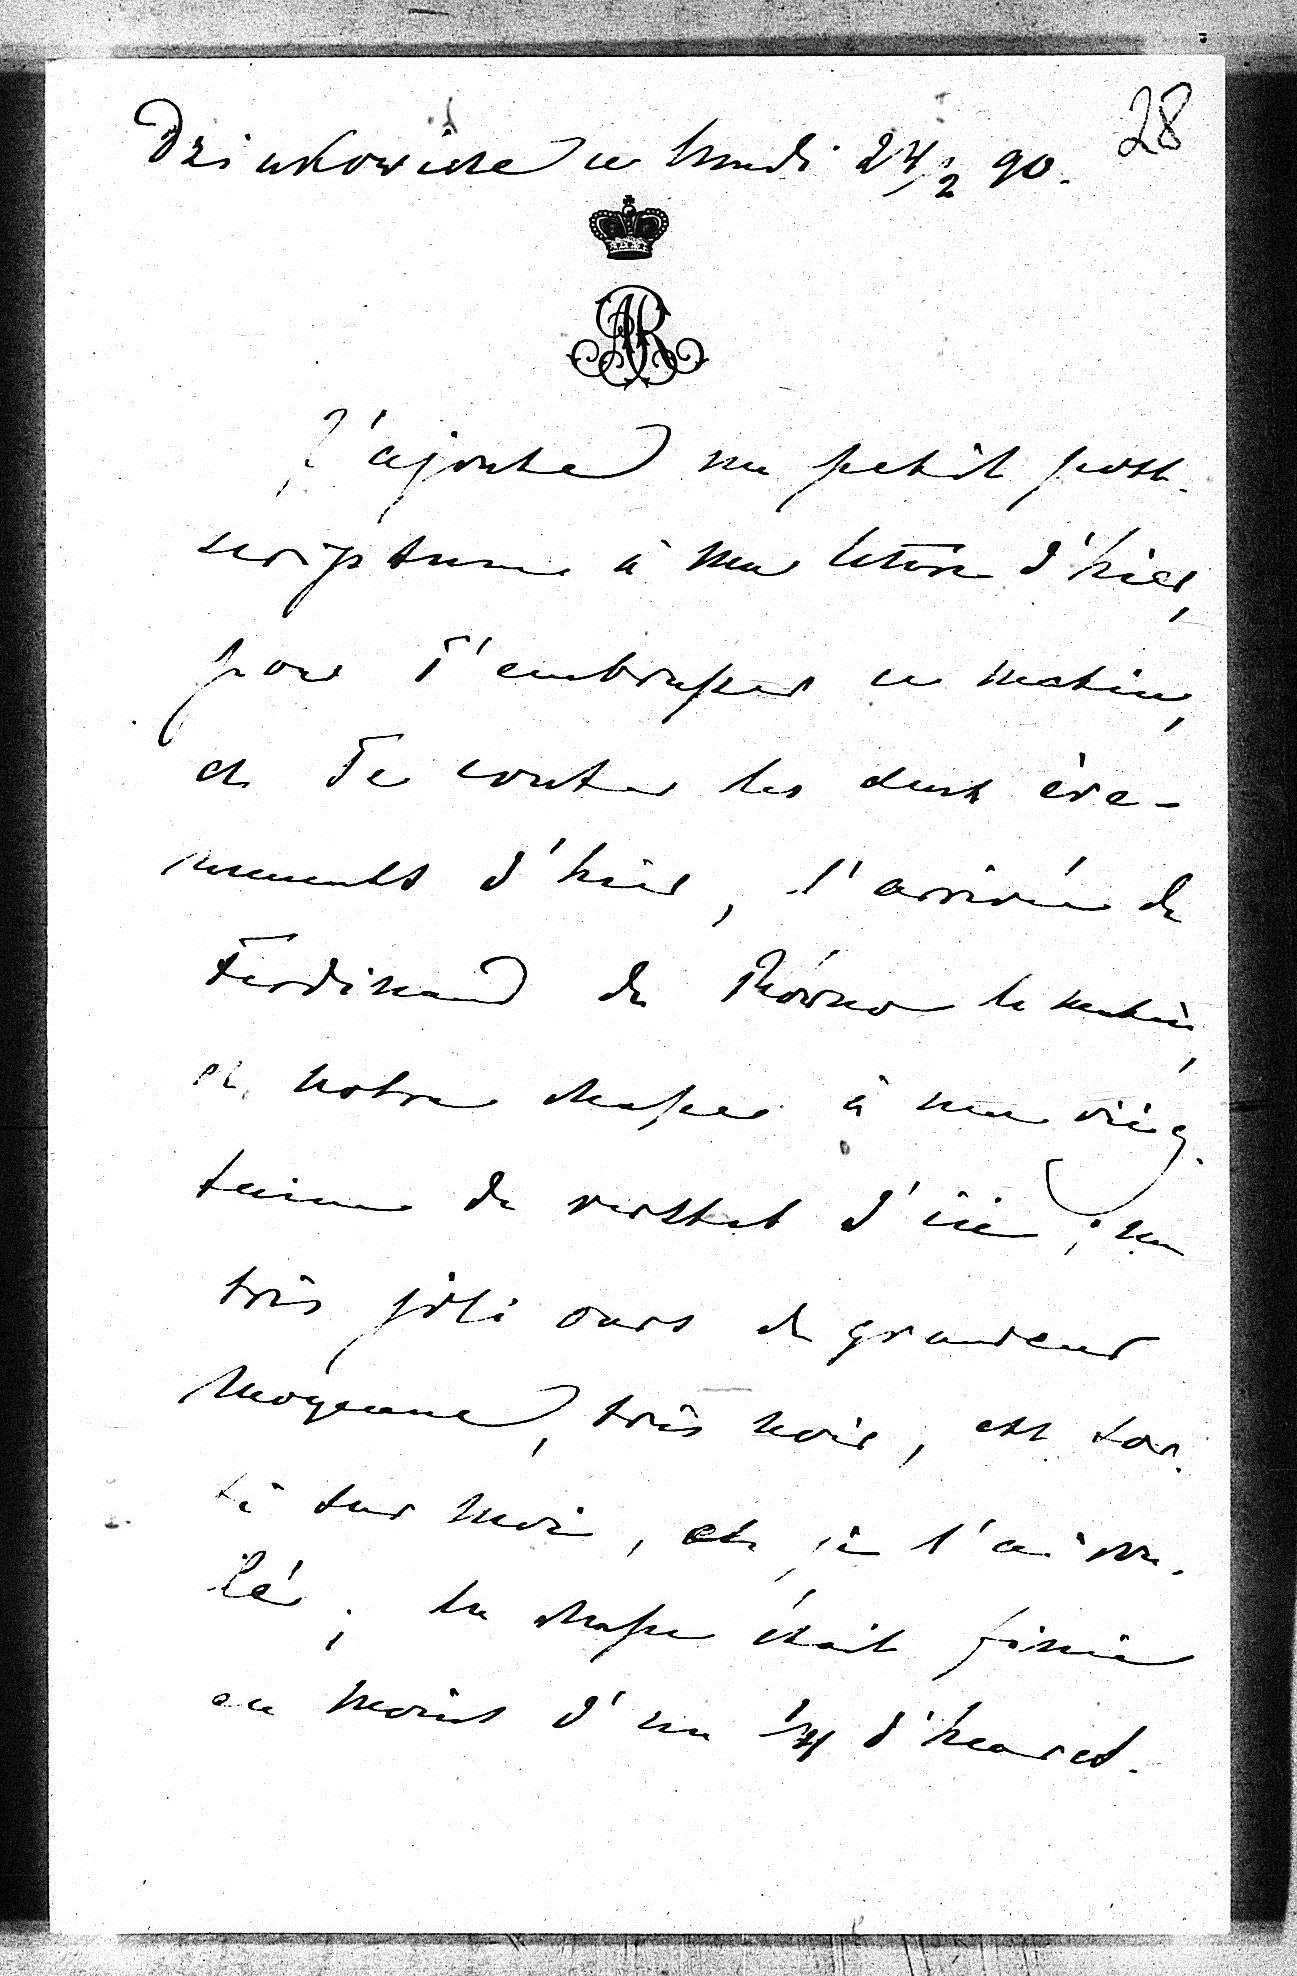 28
Dziakowicze ce lundi 24/2 90.
AR
J'ajoute un petit post-
scriptum à ma lettre d'hier,
pour T'embrasser ce matin,
et Te conter les deux évé-
nements d'hier, l'arrivée de
Ferdinand de Równo le matin,
et notre chasse à une ving-
taine de verstes d'ici; un
très joli ours de grandeur
moyenne, très noir, est sor-
ti sur moi, et je l'ai rou-
lé; la chasse était finie
en moins d'un 1/4 d'heure.